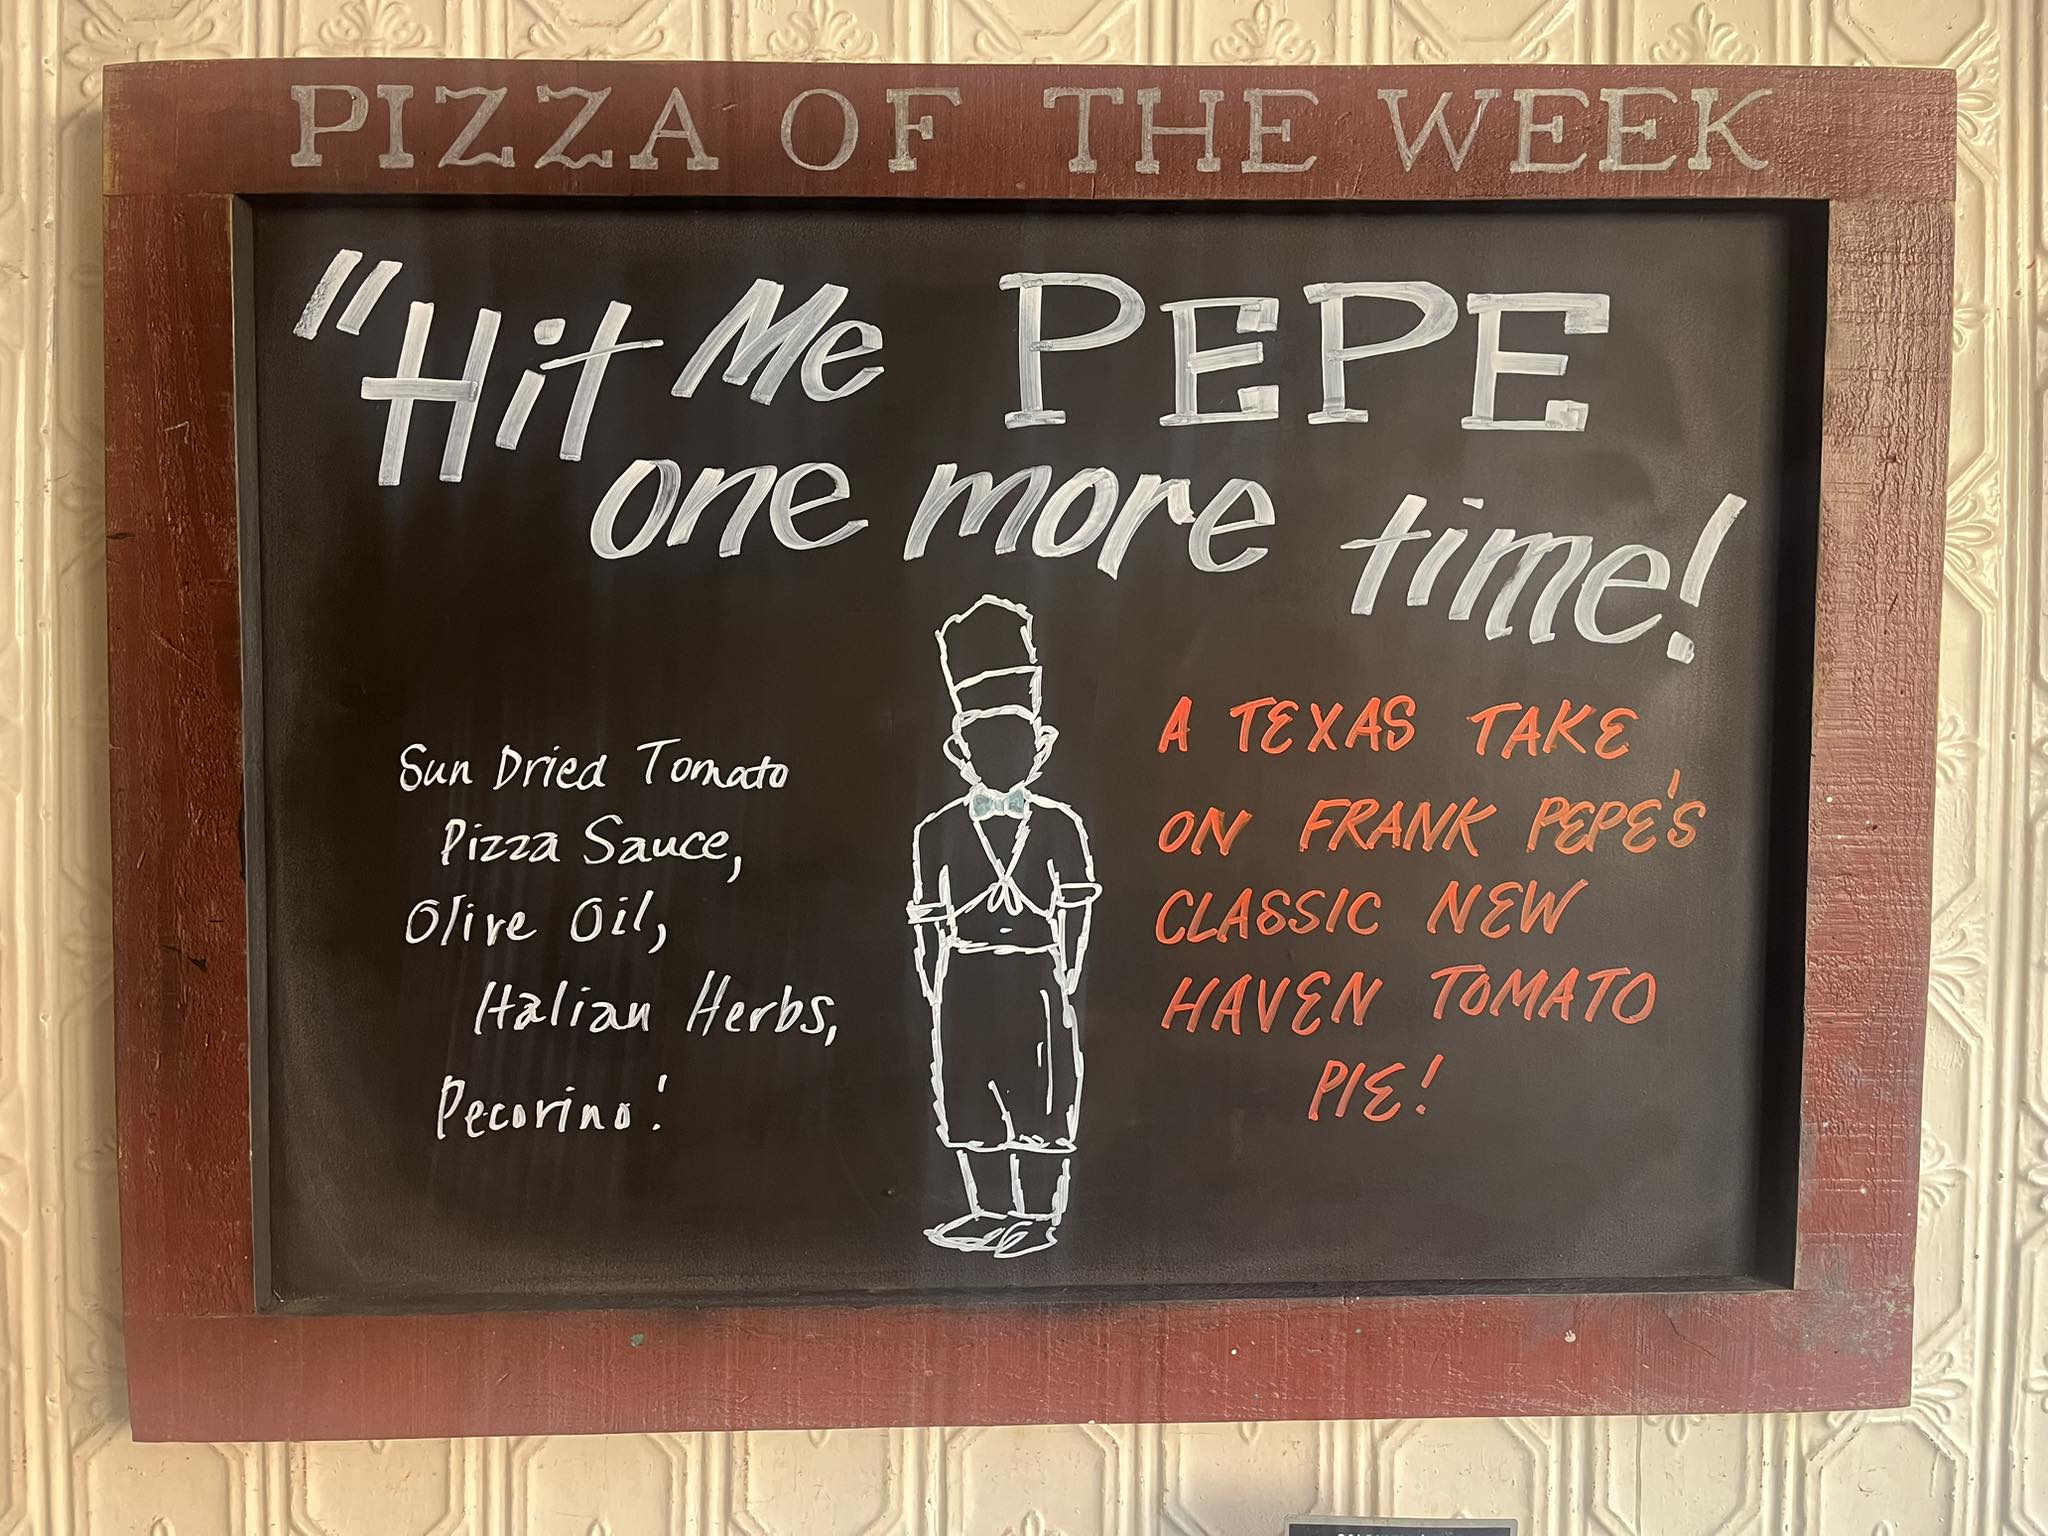 PIZZA OF THE WEEK
"Hit Me PEPE
one more time!
Sun Dried Tomato
Pizza Sauce,
Olive Oil,
Italian Herbs,
Pecorino!
A TEXAS TAKE
ON FRANK PEPE'S
CLASSIC NEW
HAVEN TOMATO
PIE!